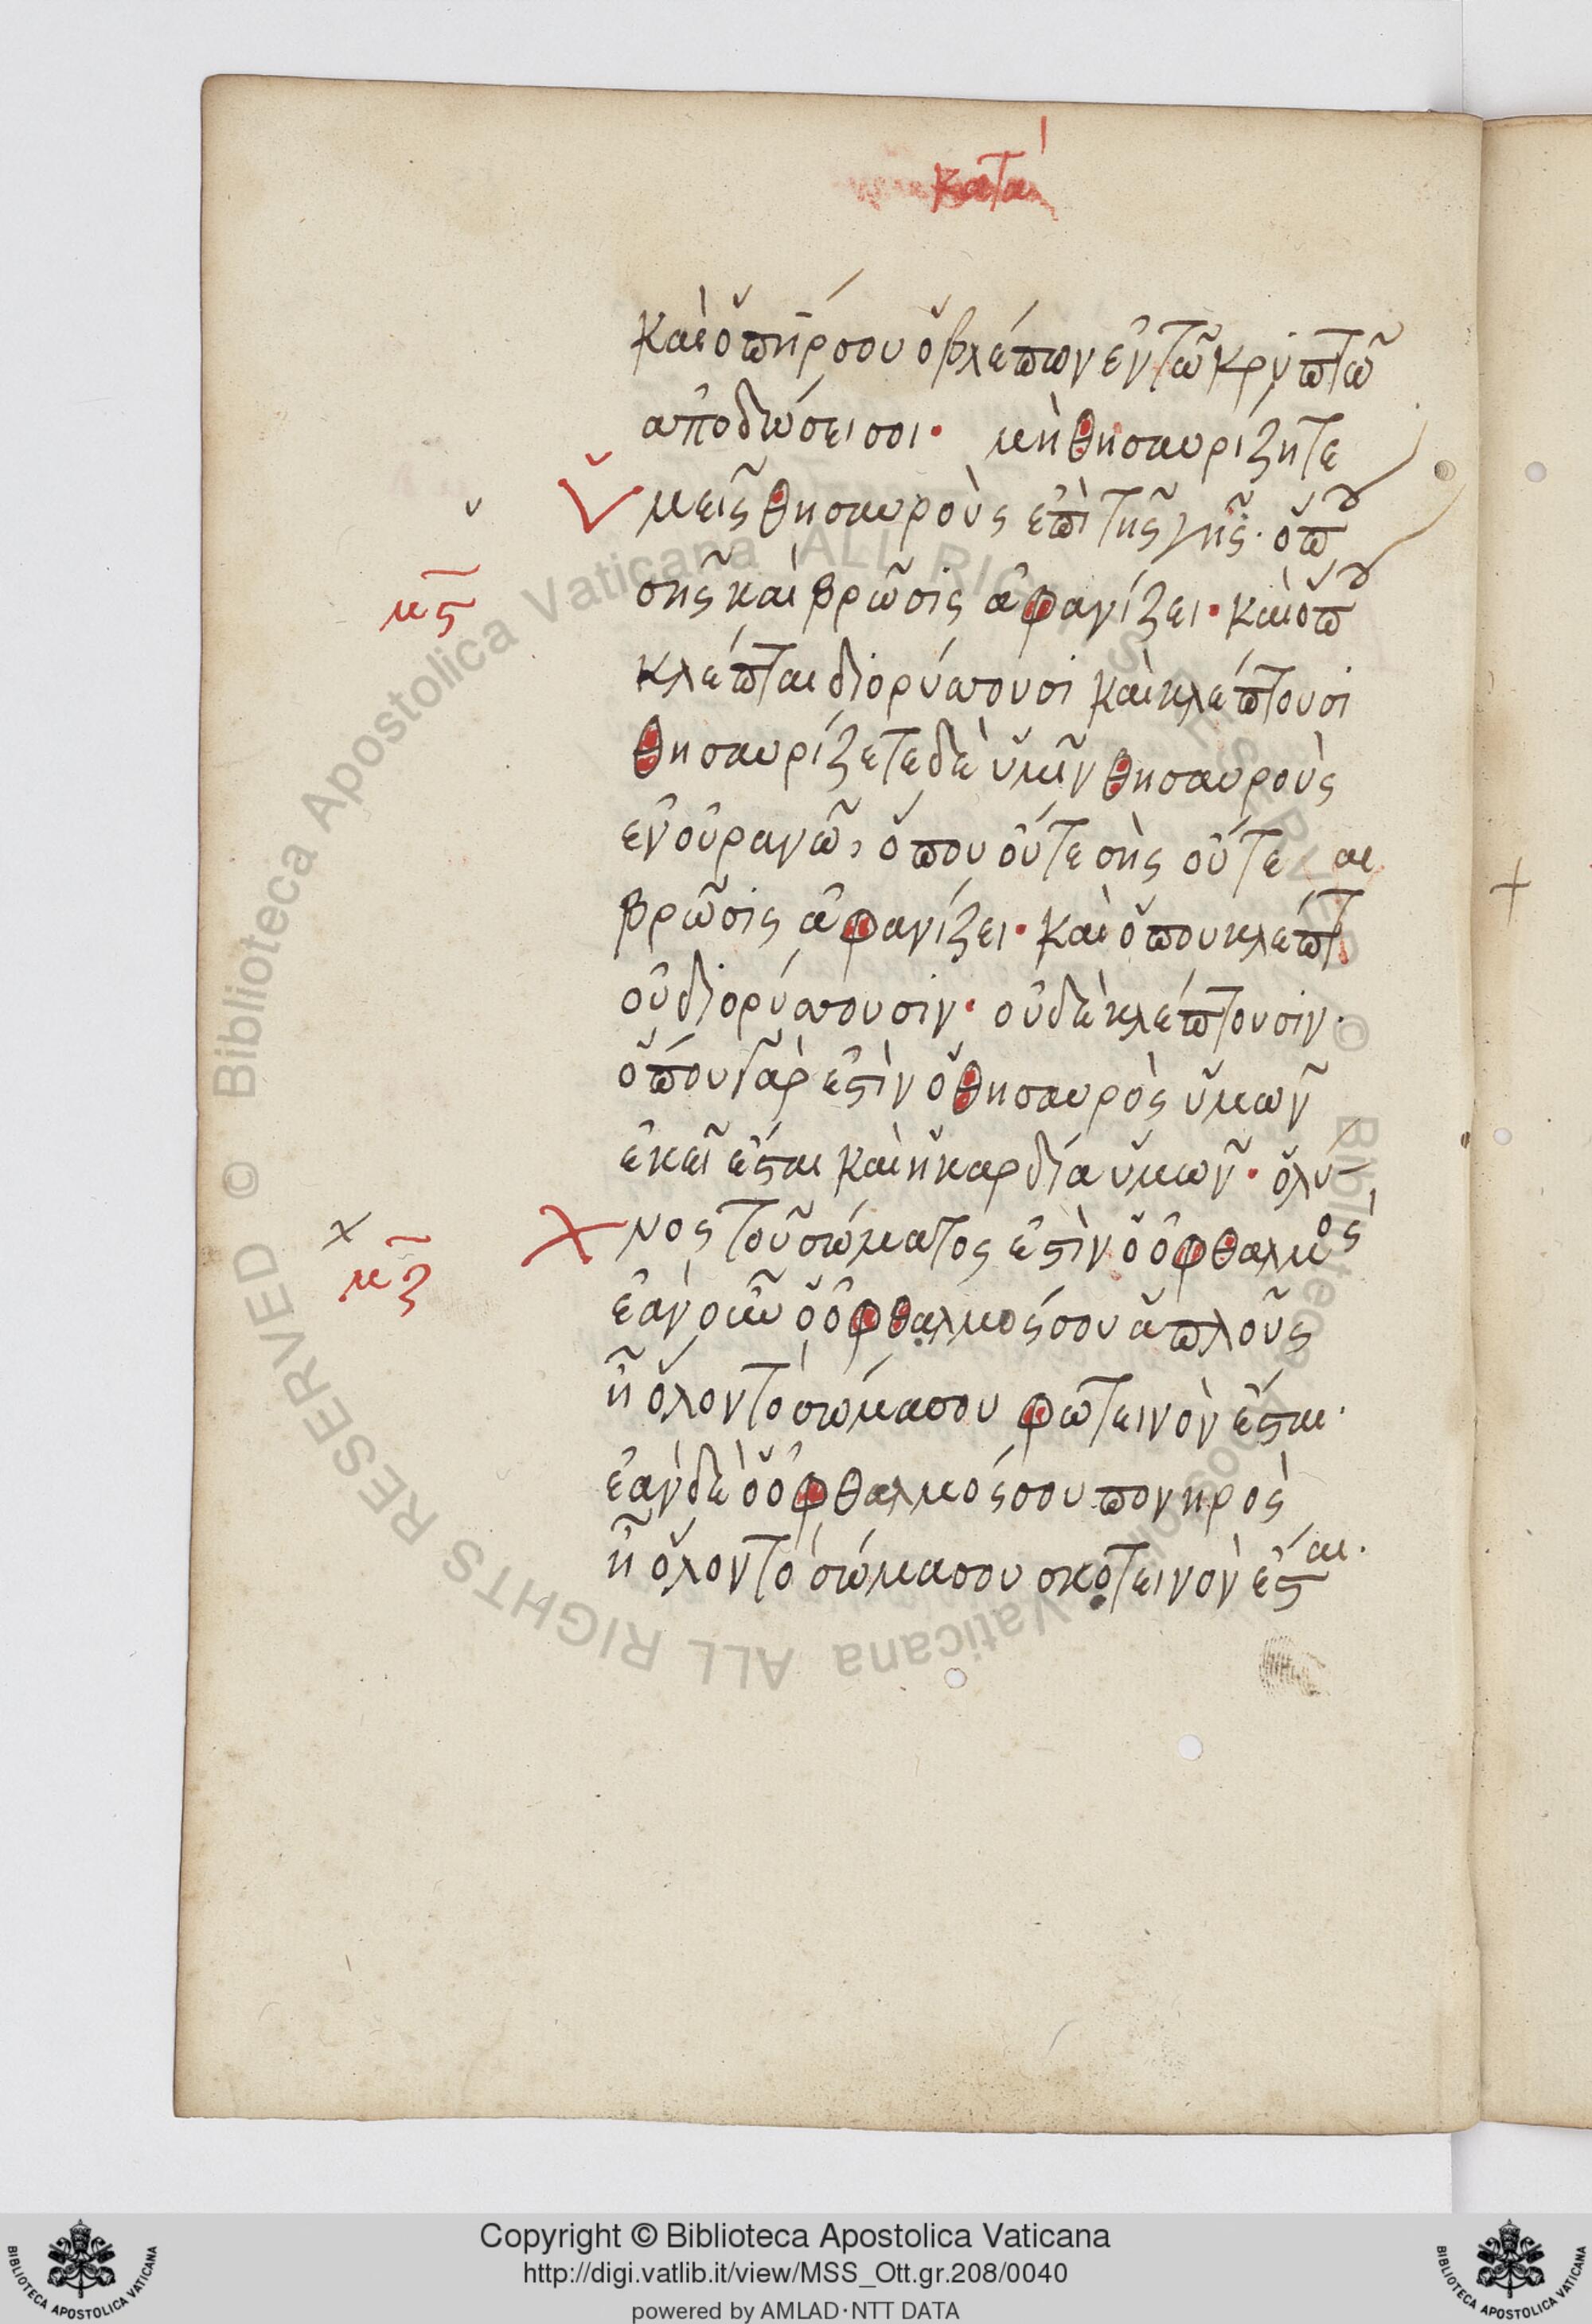 κατὰ
καὶ ὁ πηρ σου ὁ βλέπων ἐν τῶ κρυπτῶ
ἀποδώσει σοι· μὴ θησαυρίζητε
ὑμεῖς θησαυροὺς ἐπὶ τῆς γῆς· ὅπου
μς
σῆς καὶ βρῶσις ἀφανίζει· καὶ ὅπου
κλέπται διορύττουσι καὶ κλέπτουσι
θησαυρίζετε δὲ ὑμῖν θησαυροὺς
ἐν οὐρανῶ, ὅπου οὔτε σὴς οὔτε
βρῶσις ἀφανίζει· καὶ ὅπου κλέπται
οὐ διορύττουσιν· οὐδὲ κλέπτουσιν·
ὅπου γὰρ ἐστὶν ὁ θησαυρὸς ὑμῶν
ἐκεῖ ἔσται καὶ ἡ καρδία ὑμῶν· ὁ λύ
χνος τοῦ σώματος ἐστὶν ὁ ὀφθαλμὸς
μζ
ἐὰν οὖν ὁ ὀφθαλμός σου ἁπλοῦς
ἦ ὅλον τὸ σώμα σου φωτεινὸν ἔσται·
ἐὰν δὲ ὁ ὀφθαλμός σου πονηρὸς
ἦ ὅλον τὸ σώμα σου σκοτεινὸν ἔσται·
Copyright © Biblioteca Apostolica Vaticana
http://digi.vatlib.it/view/MSS_Ott.gr.208/0040
powered by AMLAD·NTT DATA
BIBLIOTECA APOSTOLICA VATICANA
BIBLIOTECA APOSTOLICA VATICANA
Biblioteca Apostolica Vaticana ALL RIGHTS RESERVED ©
Biblioteca Apostolica Vaticana ALL RIGHTS RESERVED ©